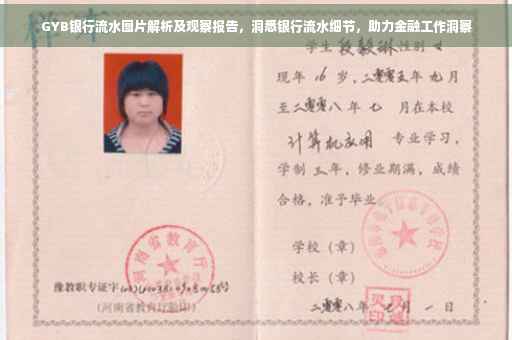 GYB银行流水图片解析及观察报告，洞悉银行流水细节，助力金融工作洞察
样本
学生段毅琳性别女
现年16岁，二零零五年九月
至二零零八年七月在本校
计算机应用专业学习，
学制三年，修业期满，成绩
合格，准予毕业。
学校（章）
校长（章）
河南省教育厅
豫教职专证字
（河南省教育厅验印）
二零零八年七月一日